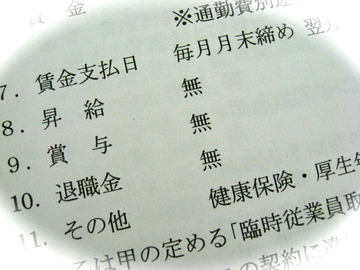 賃金
※通勤費別途
7. 賃金支払日 毎月月末締め 翌月
8. 昇給 無
9. 賞与 無
10. 退職金 無
11. その他 健康保険・厚生年
は甲の定める「臨時従業員取
の契約に違